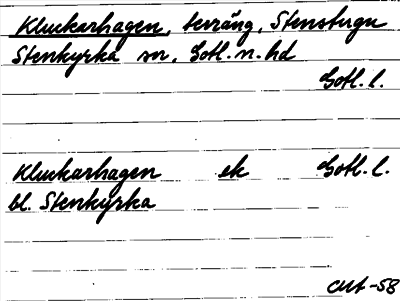 Kluckarhagen, terräng, Stenstugu
Stenkyrka sn, Gotl. n. hd
Gotl. l.
Kluckarhagen ek Gotl. l.
bl. Stenkyrka
CUt -58